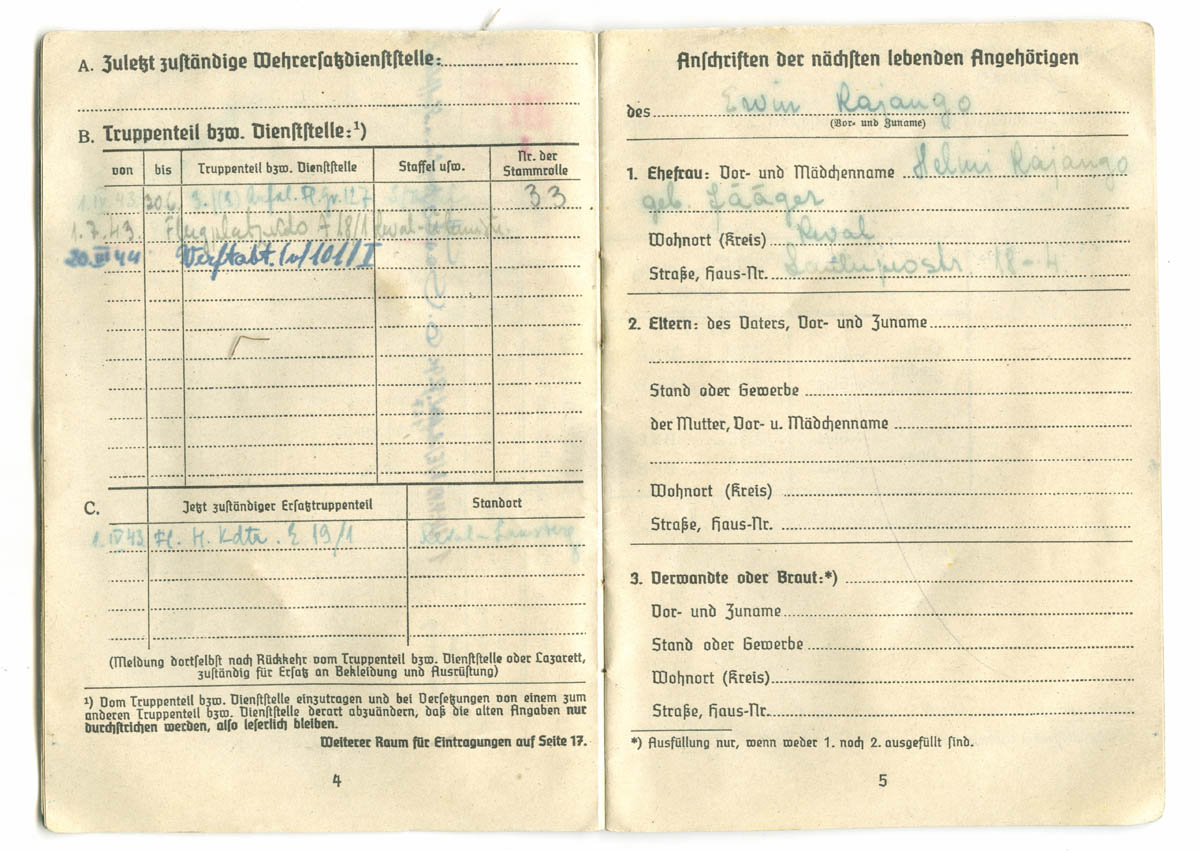 A. Zuletzt zuständige Wehrersatzdienststelle:
B. Truppenteil bzw. Dienststelle:¹)
von bis Truppenteil bzw. Dienststelle Staffel usw. Nr. der Stammrolle
1.IV.43 30.6. 3./(3) Aufkl. Fl. Gr. 127 33
1.7.43. A 18/1 Reval-
20.III 44 (v) 101/I
C. Jetzt zuständiger Ersatztruppenteil Standort
1.IV 43 Fl. H. Kdtr. E 19/1 Reval-
(Meldung dortselbst nach Rückkehr vom Truppenteil bzw. Dienststelle oder Lazarett,
zuständig für Ersatz an Bekleidung und Ausrüstung)
¹) Vom Truppenteil bzw. Dienststelle einzutragen und bei Versetzungen von einem zum
anderen Truppenteil bzw. Dienststelle derart abzuändern, daß die alten Angaben nur
durchstrichen werden, also leserlich bleiben.
Weiterer Raum für Eintragungen auf Seite 17.
4
Anschriften der nächsten lebenden Angehörigen
des Erwin Rajango
(Vor- und Zuname)
1. Ehefrau: Vor- und Mädchenname Helmi Rajango
geb. Jääger
Wohnort (Kreis) Reval
Straße, Haus-Nr. 18-4
2. Eltern: des Vaters, Vor- und Zuname
Stand oder Gewerbe
der Mutter, Vor- u. Mädchenname
Wohnort (Kreis)
Straße, Haus-Nr.
3. Verwandte oder Braut:*)
Vor- und Zuname
Stand oder Gewerbe
Wohnort (Kreis)
Straße, Haus-Nr.
*) Ausfüllung nur, wenn weder 1. noch 2. ausgefüllt sind.
5